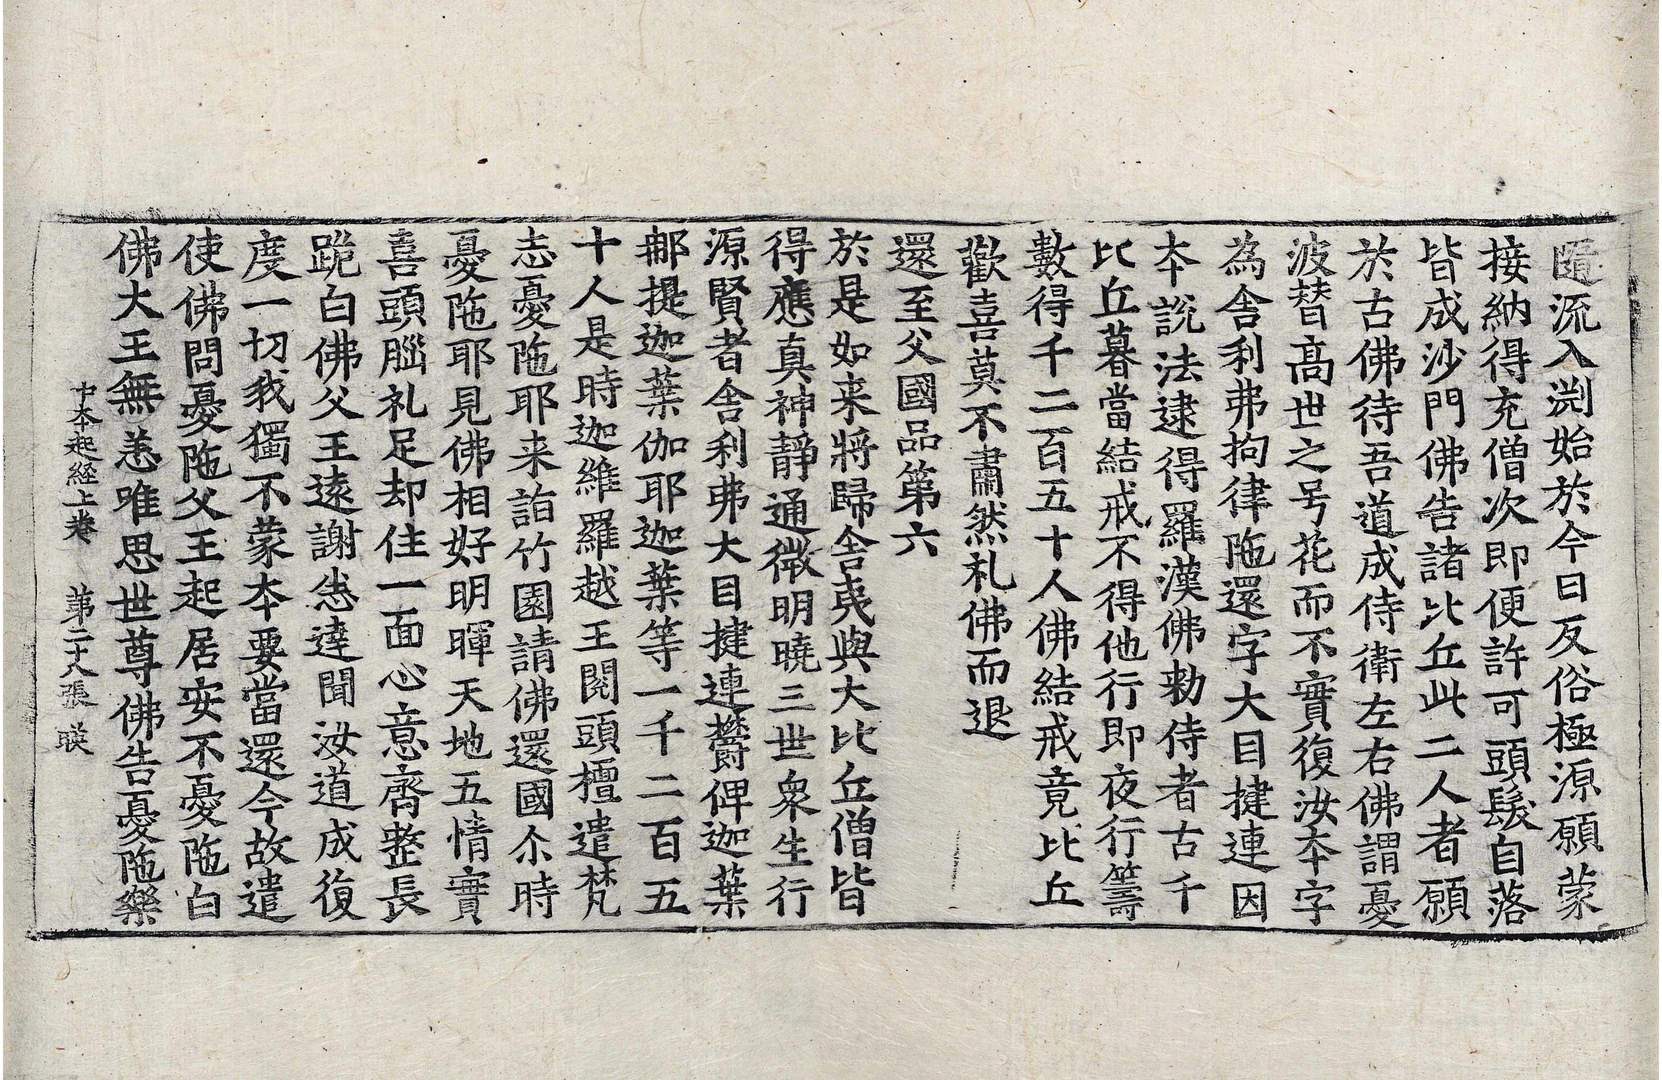 隨流入渕始於今日反俗極源願蒙
接納得充僧次即便許可頭髮自落
皆成沙門佛告諸比丘此二人者願
於古佛待吾道成侍衛左右佛謂憂
波替髙世之号花而不實復汝本字
為舍利弗拘律陁還字大目揵連因
本說法逮得羅漢佛勑侍者古千
比丘暮當結戒不得他行即夜行籌
數得千二百五十人佛結戒竟比丘
歡喜莫不肅然礼佛而退
還至父國品第六
於是如来將歸舎夷與大比丘僧皆
得應真神靜通微明曉三世衆生行
源賢者舎利弗大目揵連欝俾迦葉
那提迦葉伽耶迦葉等一千二百五
十人是時迦維羅越王閱頭檀遣梵
志憂陁耶来詣竹園請佛還國尒時
憂陁耶見佛相好明暉天地五情實
喜頭腦礼足却住一面心意齊整長
跪白佛父王逺謝悉達聞汝道成復
度一切我獨不蒙本要當還今故遣
使佛問憂陁父王起居安不憂陁白
佛大王無恙唯思世尊佛告憂陁樂
中本起經上卷 第二十八張 暎